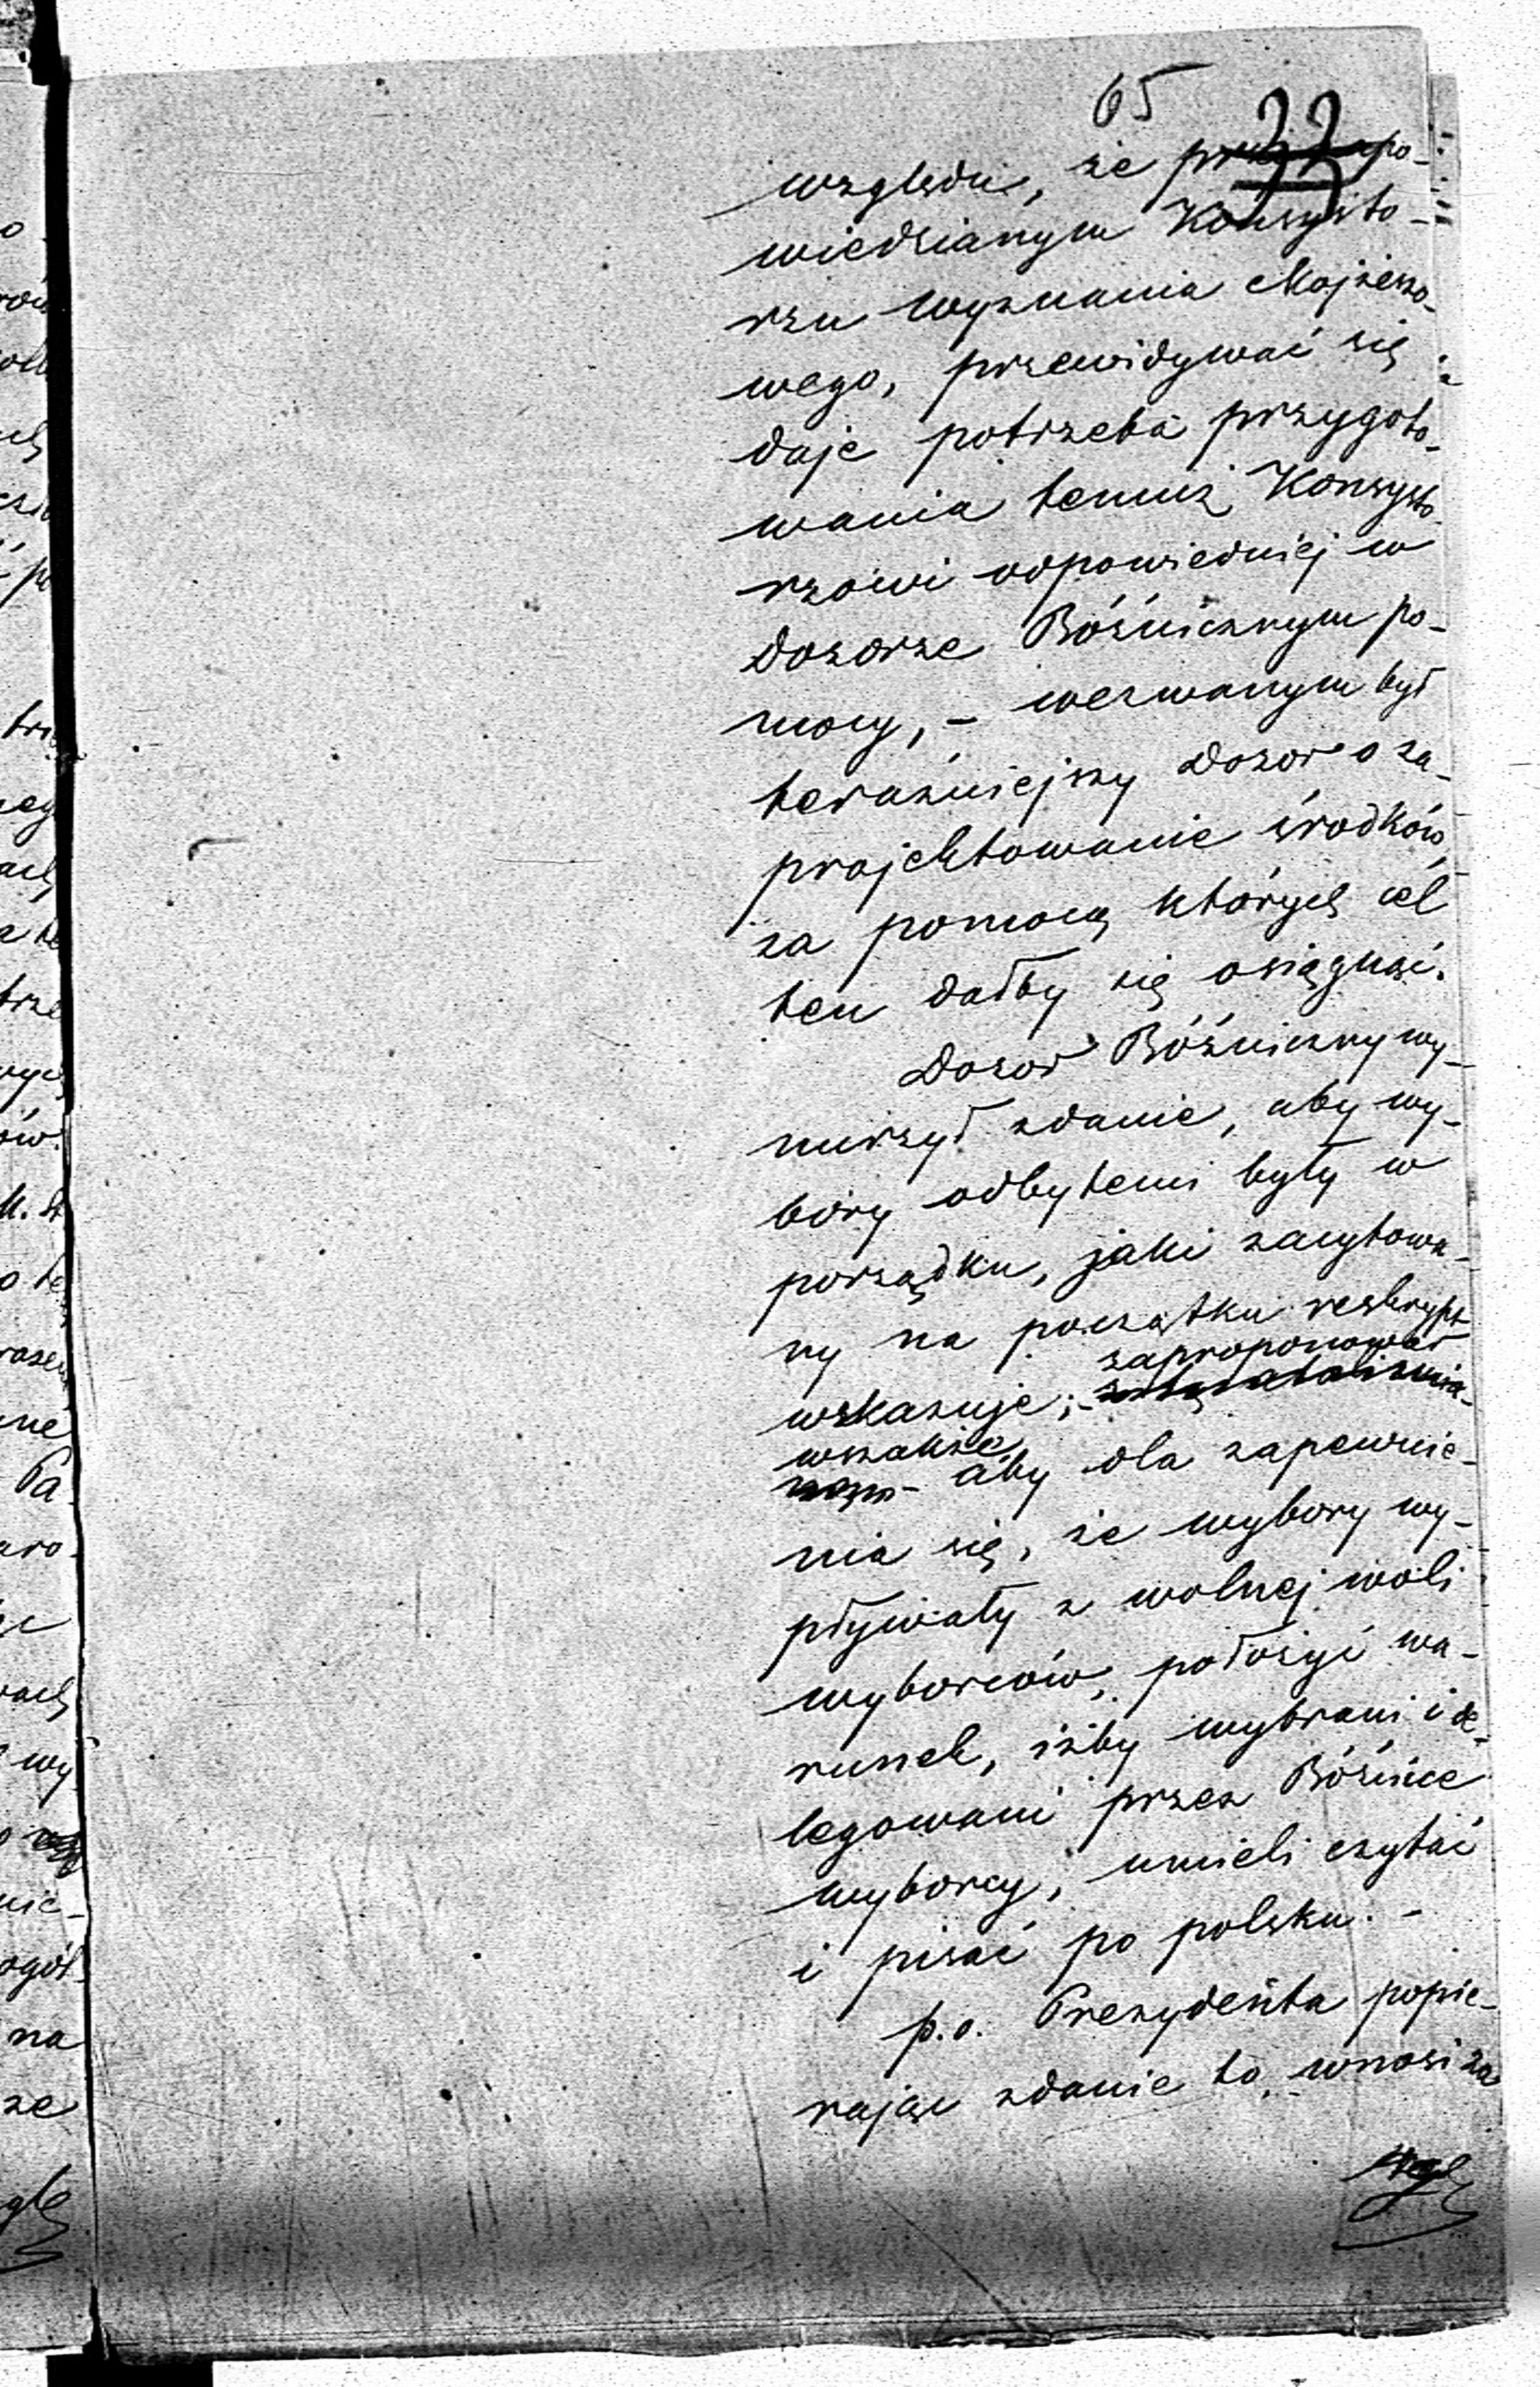 65
33
względu, że przy zapo-
wiedzianym Konsysto-
rzu wyznania Mojżeszo-
wego, przewidywać się
daje potrzeba przygoto-
wania temuż Konsysto-
rzowi odpowiedniej w
dozorze Bóźnicznym po-
mocy, - wezwanym był
teraźniejszy Dozór o za-
projektowanie środków,
za pomocą których cel
ten dałby się osiągnąć.
Dozór Bóźniczny wy-
nurzył zdanie, aby wy-
bory odbytemi były w
porządku, jaki zacytowa-
ny na początku reskrypt
zaproponował
wskazuje; -
wszakże
aby dla zapewnie-
nia się, że wybory wy-
pływały z wolnej woli
wyborców, położyć wa-
runek, iżby wybrani i de-
legowani przez Bóźnice
wyborcy, umieli czytać
i pisać po polsku. -
p.o. Prezydenta popie-
rając zdanie to, wnosi za